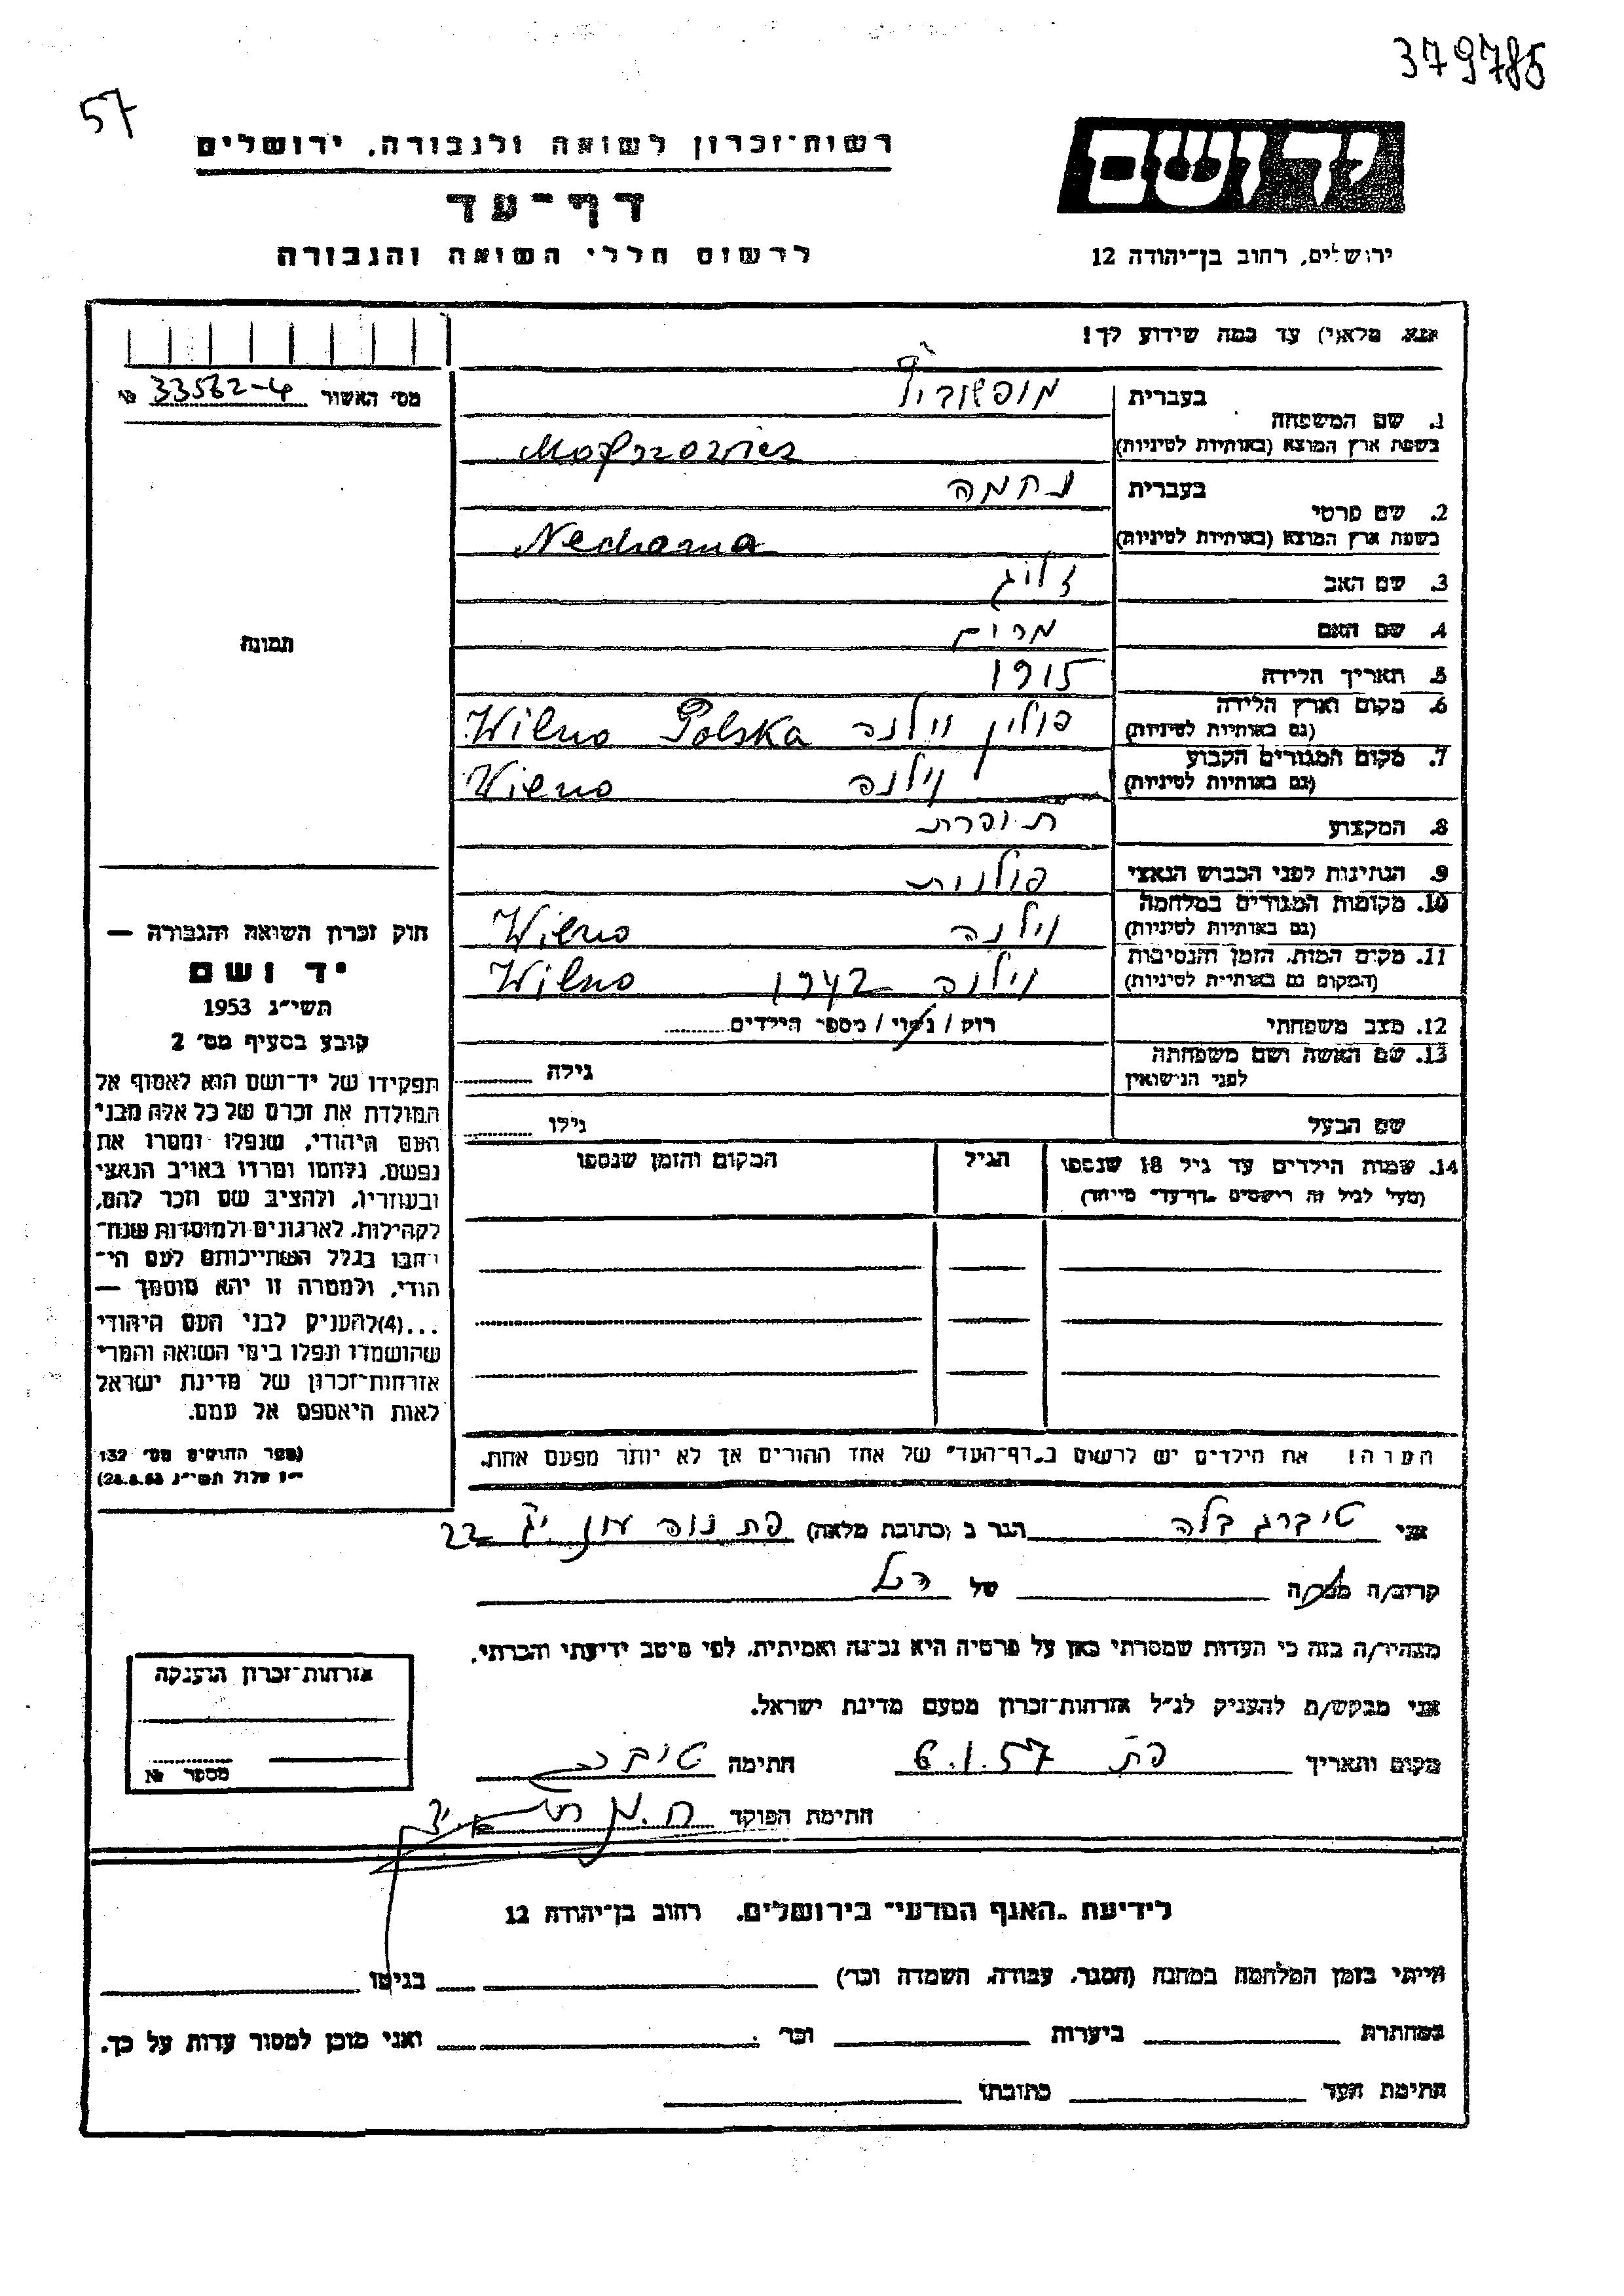 379785
57
רשות־זכרון לשואה ולגבורה, ירושלים
דף־עד
לרשום חללי השואה והגבורה
יד ושם
ירושלים, רחוב בן־יהודה 12
אנא, מלא(י) עד כמה שידוע לך!
מס' האשור 33562-4 №
1. שם המשפחה
בעברית
בשפת ארץ המוצא (באותיות לטיניות)
2. שם פרטי
בעברית נחמה
בשפת ארץ המוצא (באותיות לטיניות) Nechama
3. שם האב זליג
4. שם האם מרים
5. תאריך הלידה 1915
6. מקום וארץ הלידה (גם באותיות לטיניות) פולין וילנה Wilno Polska
7. מקום המגורים הקבוע (גם באותיות לטיניות) וילנה Wilno
8. המקצוע תופרת
9. הנתינות לפני הכבוש הנאצי פולנית
10. מקומות המגורים במלחמה (גם באותיות לטיניות) וילנה Wilno
11. מקום המות, הזמן והנסיבות (המקום גם באותיות לטיניות) וילנה 1942 Wilno
12. מצב משפחתי רווק / נשוי / מספר הילדים
13. שם האשה ושם משפחתה לפני הנישואין גילה
שם הבעל גילו
14. שמות הילדים עד גיל 18 שנספו (מעל לגיל זה רושמים "דף־עד" מיוחד) הגיל המקום והזמן שנספו
הערה! את הילדים יש לרשום ב"דף־העד" של אחד ההורים אך לא יותר מפעם אחת.
תמונה
חוק זכרון השואה והגבורה —
יד ושם
תשי"ג 1953
קובע בסעיף מס' 2
תפקידו של יד־ושם הוא לאסוף אל
המולדת את זכרם של כל אלה מבני
העם היהודי, שנפלו ומסרו את
נפשם, נלחמו ומרדו באויב הנאצי
ובעוזריו, ולהציב שם וזכר להם,
לקהילות, לארגונים ולמוסדות שנח־
רבו בגלל השתייכותם לעם הי־
הודי, ולמטרה זו יהא מוסמך —
...(4)להעניק לבני העם היהודי
שהושמדו ונפלו בימי השואה והמרי
אזרחות־זכרון של מדינת ישראל
לאות היאספם אל עמם.
(ספר החוקים מס' 132
י"ז אלול תשי"ג 28.8.53)
אני טיברג בלה הגר ב (כתובת מלאה) פת נוה עוז 22
קרוב/ה מכר/ה של הנ"ל
מצהיר/ה בזה כי העדות שמסרתי כאן על פרטיה היא נכונה ואמיתית, לפי מיטב ידיעתי והכרתי.
אני מבקש/ת להעניק לנ"ל אזרחות־זכרון מטעם מדינת ישראל.
מקום ותאריך פת 6.1.57 חתימה
חתימת הפוקד
אזרחות־זכרון הוענקה
מספר №
לידיעת "האגף המדעי" בירושלים, רחוב בן־יהודה 12
הייתי בזמן המלחמה במחנה (הסגר, עבודה, השמדה וכר') בגיטו
במחתרת ביערות וכר' ואני מוכן למסור עדות על כך.
חתימת העד כתובתו